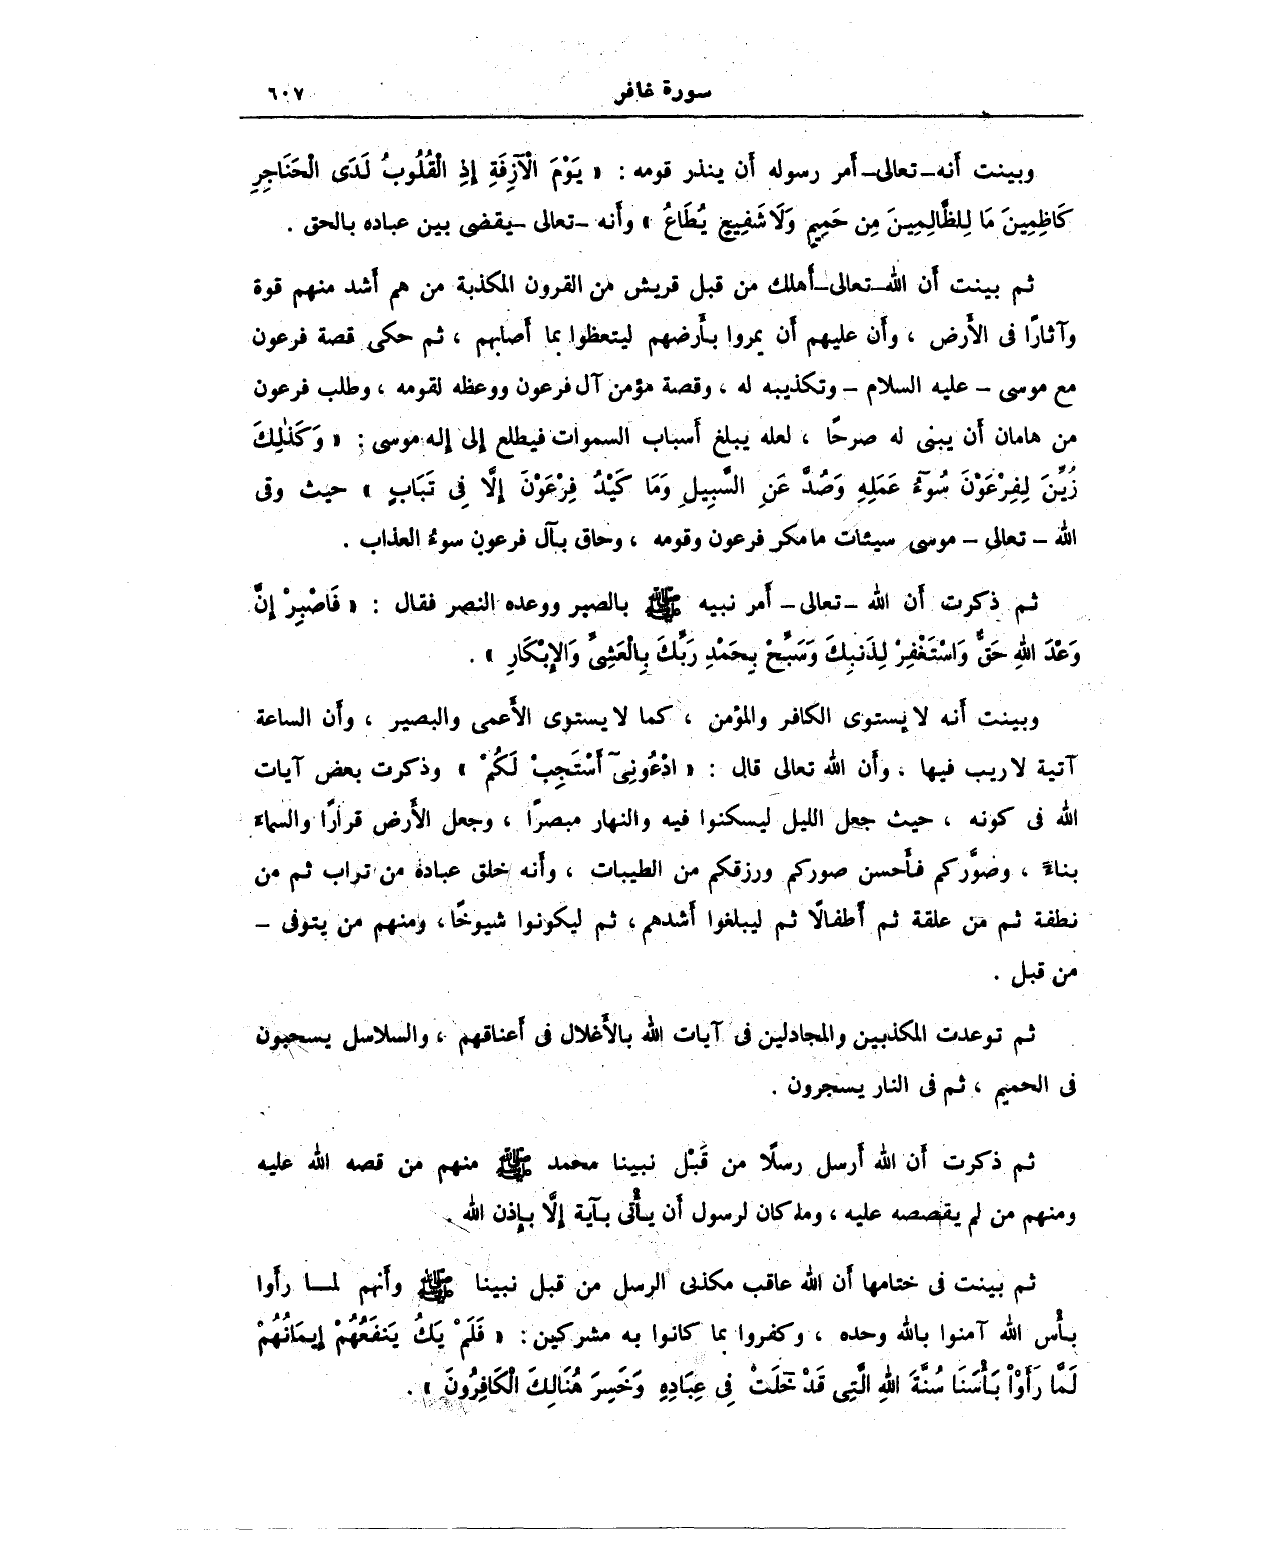 سورة غافر
٦٠٧
وبينت أنه ـ تعالى ـ أمر رسوله أن ينذر قومه : « يَوْمَ الْآزِفَةِ إِذِ الْقُلُوبُ لَدَى الْحَنَاجِرِ
كَاظِمِينَ مَا لِلظَّالِمِينَ مِن حَمِيمٍ وَلَا شَفِيعٍ يُطَاعُ » وأنه ـ تعالى ـ يقضى بين عباده بالحق .
ثم بينت أن الله ـ تعالى ـ أهلك من قبل قريش من القرون المكذبة من هم أشد منهم قوة
وآثارًا فى الأَرض ، وأن عليهم أن يمروا بأَرضهم ليتعظوا بما أصابهم ، ثم حكى قصة فرعون
مع موسى – عليه السلام – وتكذيبه له ، وقصة مؤمن آل فرعون ووعظه لقومه ، وطلب فرعون
من هامان أن يبنى له صرحًا ، لعله يبلغ أسباب السموات فيطلع إلى إله موسى : « وَكَذَٰلِكَ
زُيِّنَ لِفِرْعَوْنَ سُوٓءُ عَمَلِهِ وَصُدَّ عَنِ السَّبِيلِ وَمَا كَيْدُ فِرْعَوْنَ إِلَّا فِى تَبَابٍ » حيث وقى
الله – تعالى – موسى سيئات ما مكر فرعون وقومه ، وحاق بآل فرعون سوءُ العذاب .
ثم ذكرت أن الله – تعالى – أمر نبيه ﷺ بالصبر ووعده النصر فقال : « فَاصْبِرْ إِنَّ
وَعْدَ اللهِ حَقٌّ وَاسْتَغْفِرْ لِذَنبِكَ وَسَبِّحْ بِحَمْدِ رَبِّكَ بِالْعَشِىِّ وَالإِبْكَارِ » .
وبينت أنه لا يستوى الكافر والمؤمن ، كما لا يستوى الأَعمى والبصير ، وأن الساعة
آتية لا ريب فيها ، وأن الله تعالى قال : « ادْعُونِىٓ أَسْتَجِبْ لَكُمْ » وذكرت بعض آيات
الله فى كونه ، حيث جعل الليل ليسكنوا فيه والنهار مبصرًا ، وجعل الأَرض قرارًا والسماءَ
بناءً ، وصوَّركم فأَحسن صوركم ورزقكم من الطيبات ، وأنه خلق عباده من تراب ثم من
نطفة ثم من علقة ثم أطفالًا ثم ليبلغوا أشدهم ، ثم ليكونوا شيوخًا ، ومنهم من يتوفى –
من قبل .
ثم توعدت المكذبين والمجادلين فى آيات الله بالأَغلال فى أعناقهم ، والسلاسل يسحبون
فى الحميم ، ثم فى النار يسجرون .
ثم ذكرت أن الله أرسل رسلًا من قَبْل نبينا محمد ﷺ منهم من قصه الله عليه
ومنهم من لم يقصصه عليه ، وما كان لرسول أن يأْتى بآية إلَّا بإذن الله .
ثم بينت فى ختامها أن الله عاقب مكذبى الرسل من قبل نبينا ﷺ وأنهم لمـا رأَوا
بأْس الله آمنوا بالله وحده ، وكفروا بما كانوا به مشركين : « فَلَمْ يَكُ يَنفَعُهُمْ إِيمَانُهُمْ
لَمَّا رَأَوْا بَأْسَنَا سُنَّةَ اللهِ الَّتِى قَدْ خَلَتْ فِى عِبَادِهِ وَخَسِرَ هُنَالِكَ الْكَافِرُونَ » .